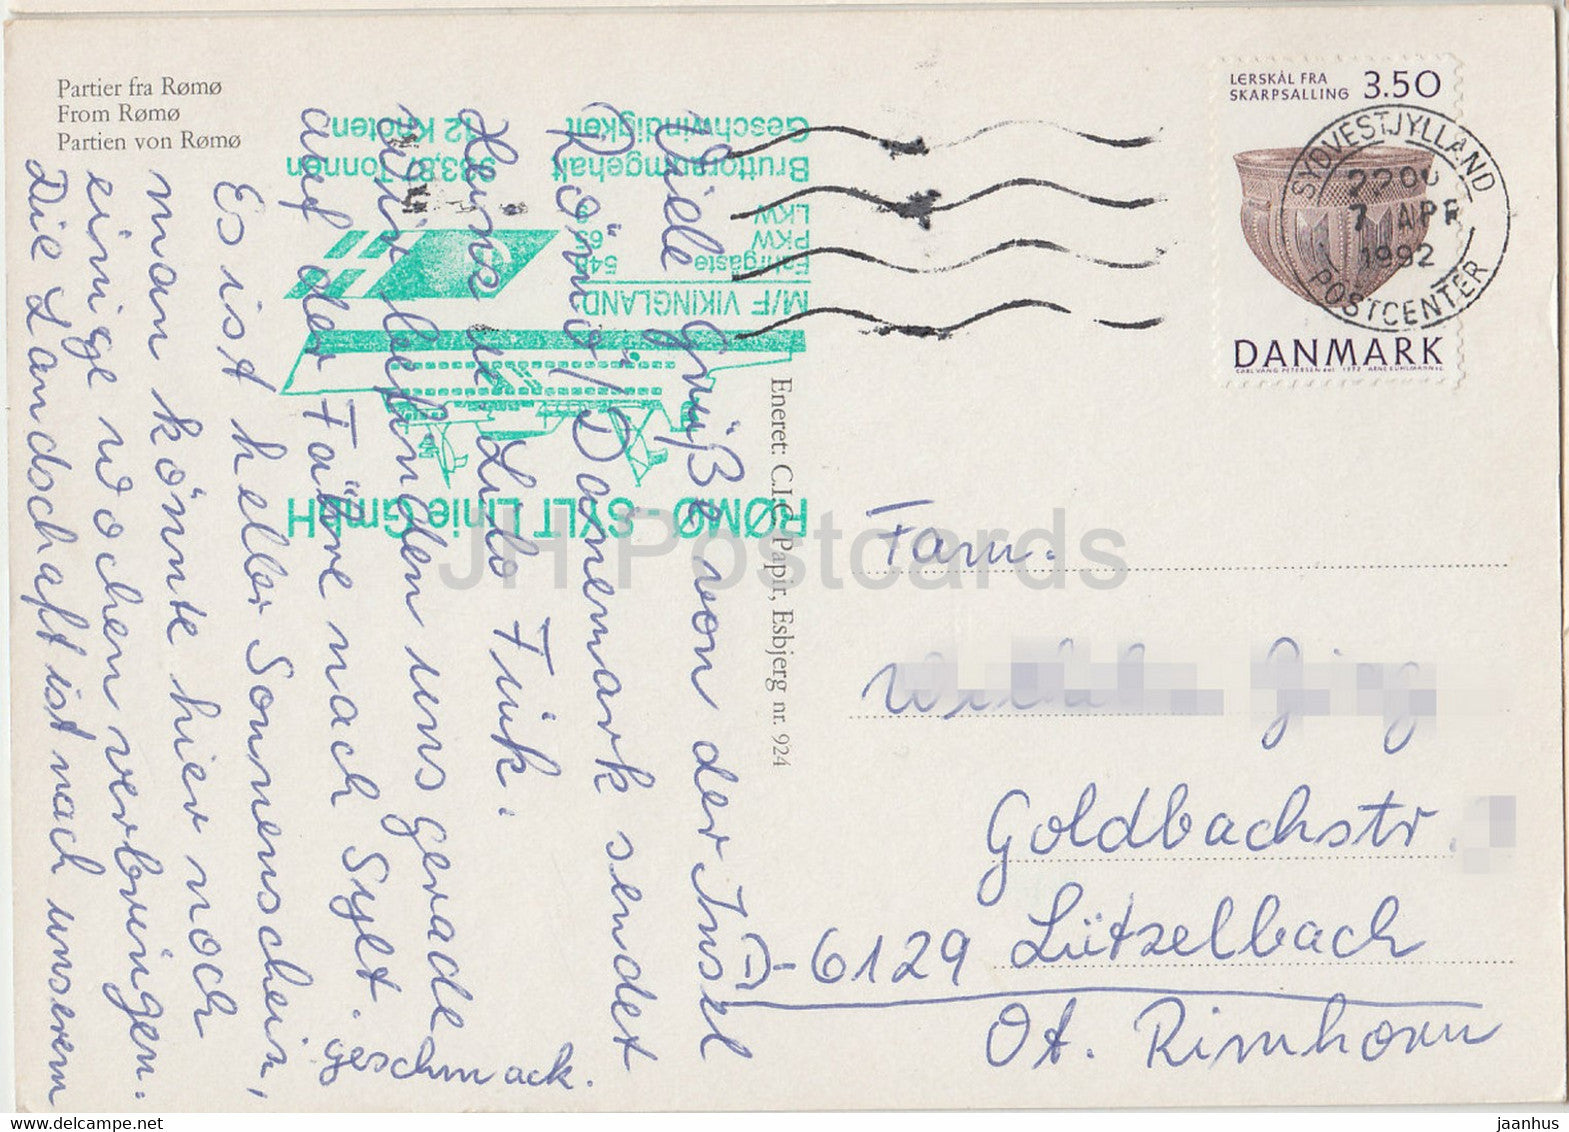 Partier fra Rømø
From Rømø
Partien von Rømø
Viele Grüße von der Insel
Römö / Dänemark sendet
Heinz u. Lilo Fink.
Wir befinden uns gerade
auf der Fähre nach Sylt.
Es ist heller Sonnenschein,
man könnte hier noch
einige Wochen verbringen.
Die Landschaft ist nach unserem
geschmack.
RØMØ - SYLT Linie GmbH
M/F VIKINGLAND
Fahrgäste 548
PKW
LKW
Bruttoraumgehalt 983,87 Tonnen
Geschwindigkeit 12 Knoten
Eneret: C.I.C. Papir, Esbjerg nr. 924
LERSKÅL FRA
SKARPSALLING 3.50
DANMARK
SYDVESTJYLLAND
2200
7 APR
1992
POSTCENTER
Fam.
Goldbachstr.
D-6129 Lützelbach
Ot. Rimhorn
JH Postcards
jaanhus